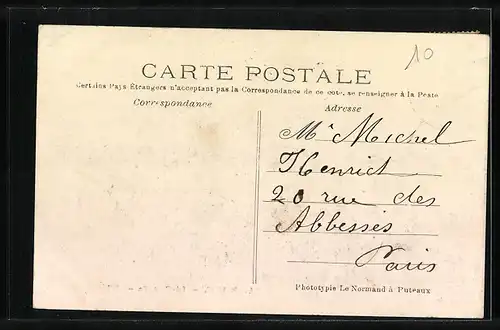 10
CARTE POSTALE
Certains Pays Étrangers n'acceptant pas la Correspondance de ce coté, se renseigner à la Poste
Correspondance
Adresse
Mr Michel
Henrict
20 rue des
Abbesses
Paris
Phototypie Le Normand à Puteaux